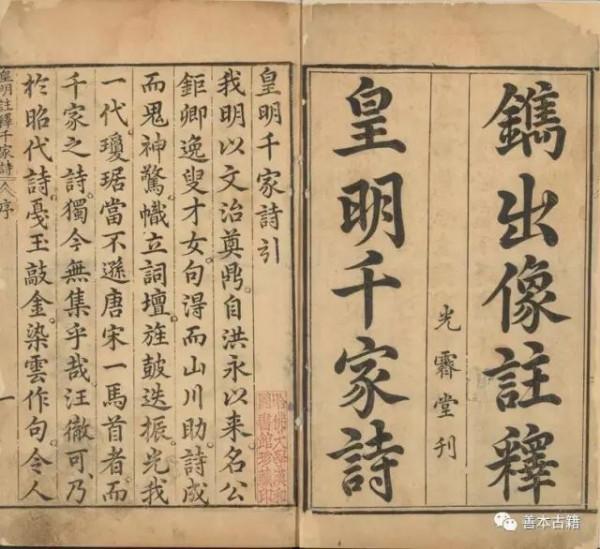 鐫出像註釋
光霽堂刊
皇明千家詩
皇明千家詩引
我明以文治奠鼎自洪永以來名公
鉅卿逸叟才女句淂而山川助詩成
而鬼神驚幟立詞壇旌皷迭振光我
一代瓊琚當不遜唐宋一馬首者而
千家之詩獨今無集乎哉汪徹可乃
於昭代詩戞玉敲金染雲作句令人
一
皇明註釋千家詩
序
哈佛大學漢和圖書館珍藏印
善本古籍